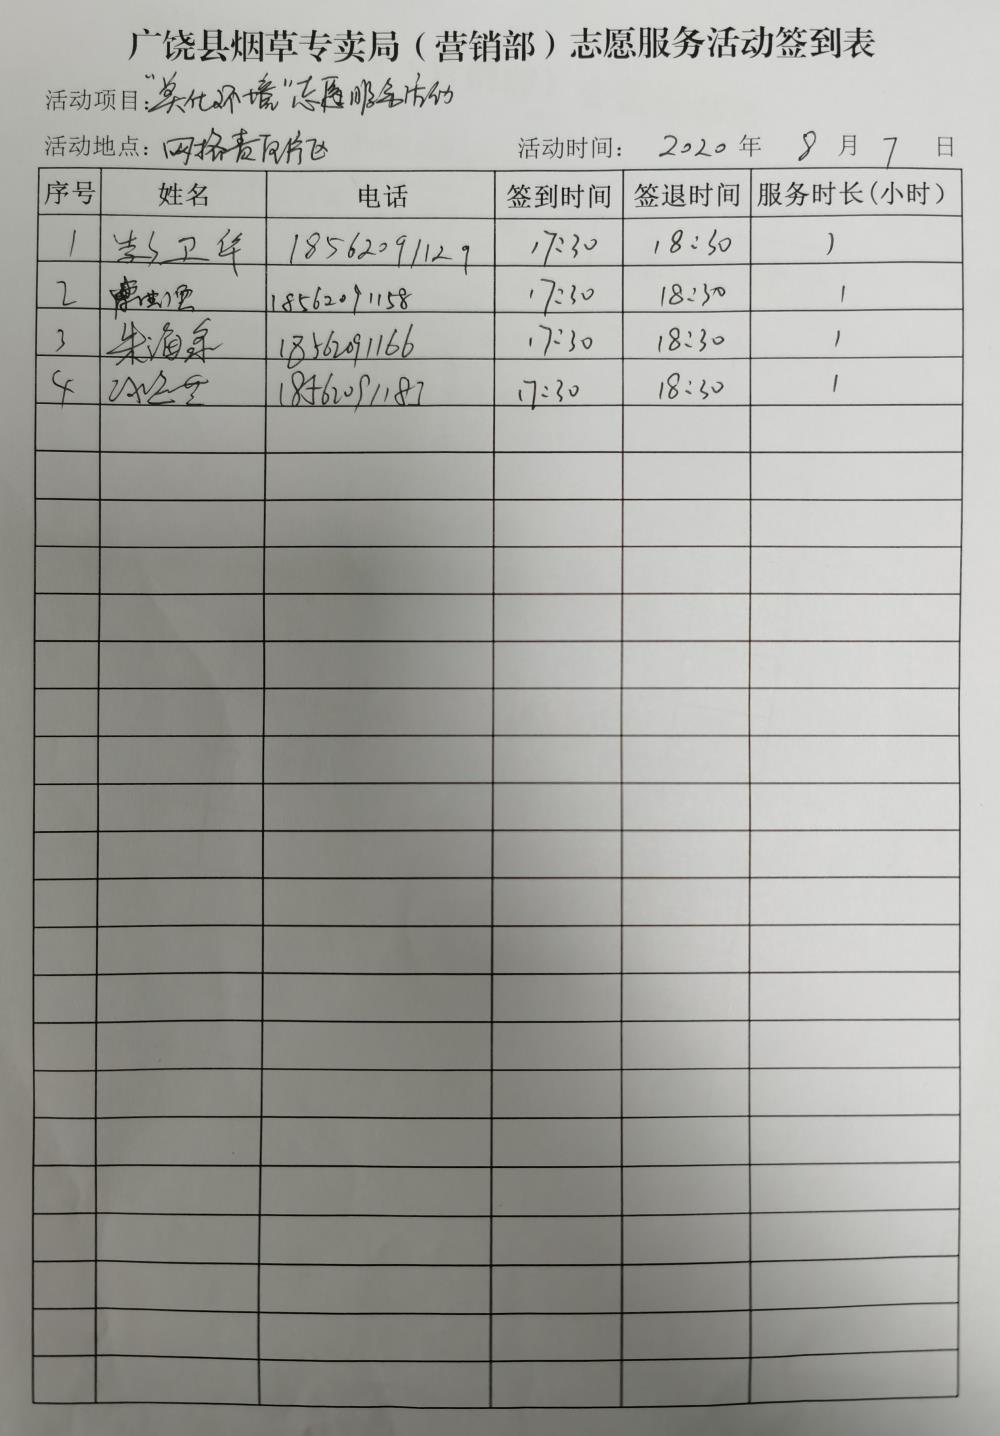 广饶县烟草专卖局（营销部）志愿服务活动签到表
活动项目：“美化环境”志愿服务活动
活动地点：网格责任片区 活动时间： 2020 年 8 月 7 日
序号 姓名 电话 签到时间 签退时间 服务时长(小时)
1 卫华 18562091129 17:30 18:30 1
2 18562091158 17:30 18:30 1
3 朱海 18562091166 17:30 18:30 1
4 18562091187 17:30 18:30 1